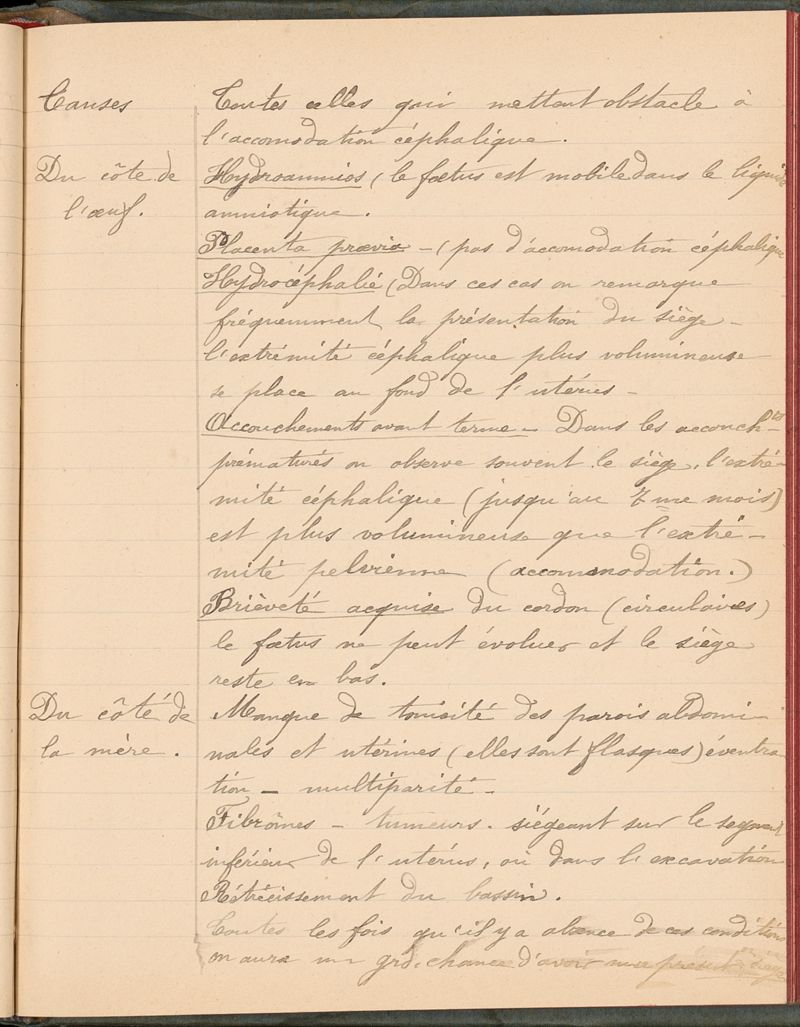 Causes
Toutes celles qui mettent obstacle à
l'accomodation céphalique.
Du côté de
l'œuf.
Hydroamnios (le fœtus est mobile dans le liquide
amniotique.
Placenta prævia - (pas d'accomodation céphalique
Hydrocéphalie (Dans ces cas on remarque
fréquemment la présentation du siège -
l'extrémité céphalique plus volumineuse
se place au fond de l'utérus -
Accouchements avant terme - Dans les accouch-ts
prématurés on observe souvent le siège, l'extré-
mité céphalique (jusqu'au 7me mois)
est plus volumineuse que l'extré-
mité pelvienne (accommodation.)
Brièveté acquise du cordon (circulaires)
le fœtus ne peut évoluer et le siège
reste en bas.
Du côté de
la mère.
Manque de tonicité des parois abdomi-
nales et utérines (elles sont flasques) éventra
tion - multiparité -
Fibrômes - tumeurs. siégeant sur le segment
inférieur de l'utérus, où dans l'excavation
Rétrécissement du bassin.
Toutes les fois qu'il y a absence de ces conditions
on aura un grd. chance d'avoir une présent. siège